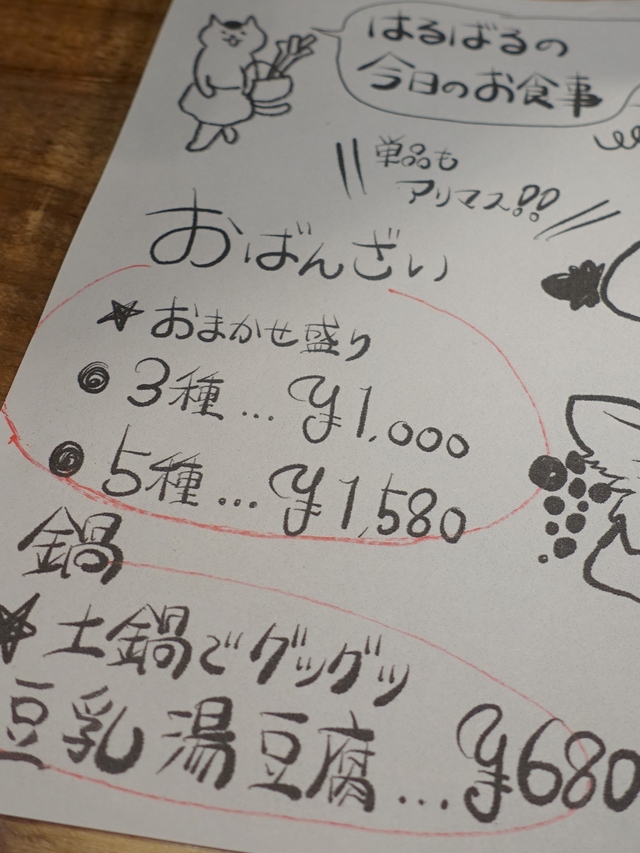 はるばるの
今日のお食事
単品も
アリマス!!
おばんざい
★おまかせ盛り
◉3種…¥1,000
◉5種…¥1,580
鍋
★土鍋でグツグツ
豆乳湯豆腐…¥680